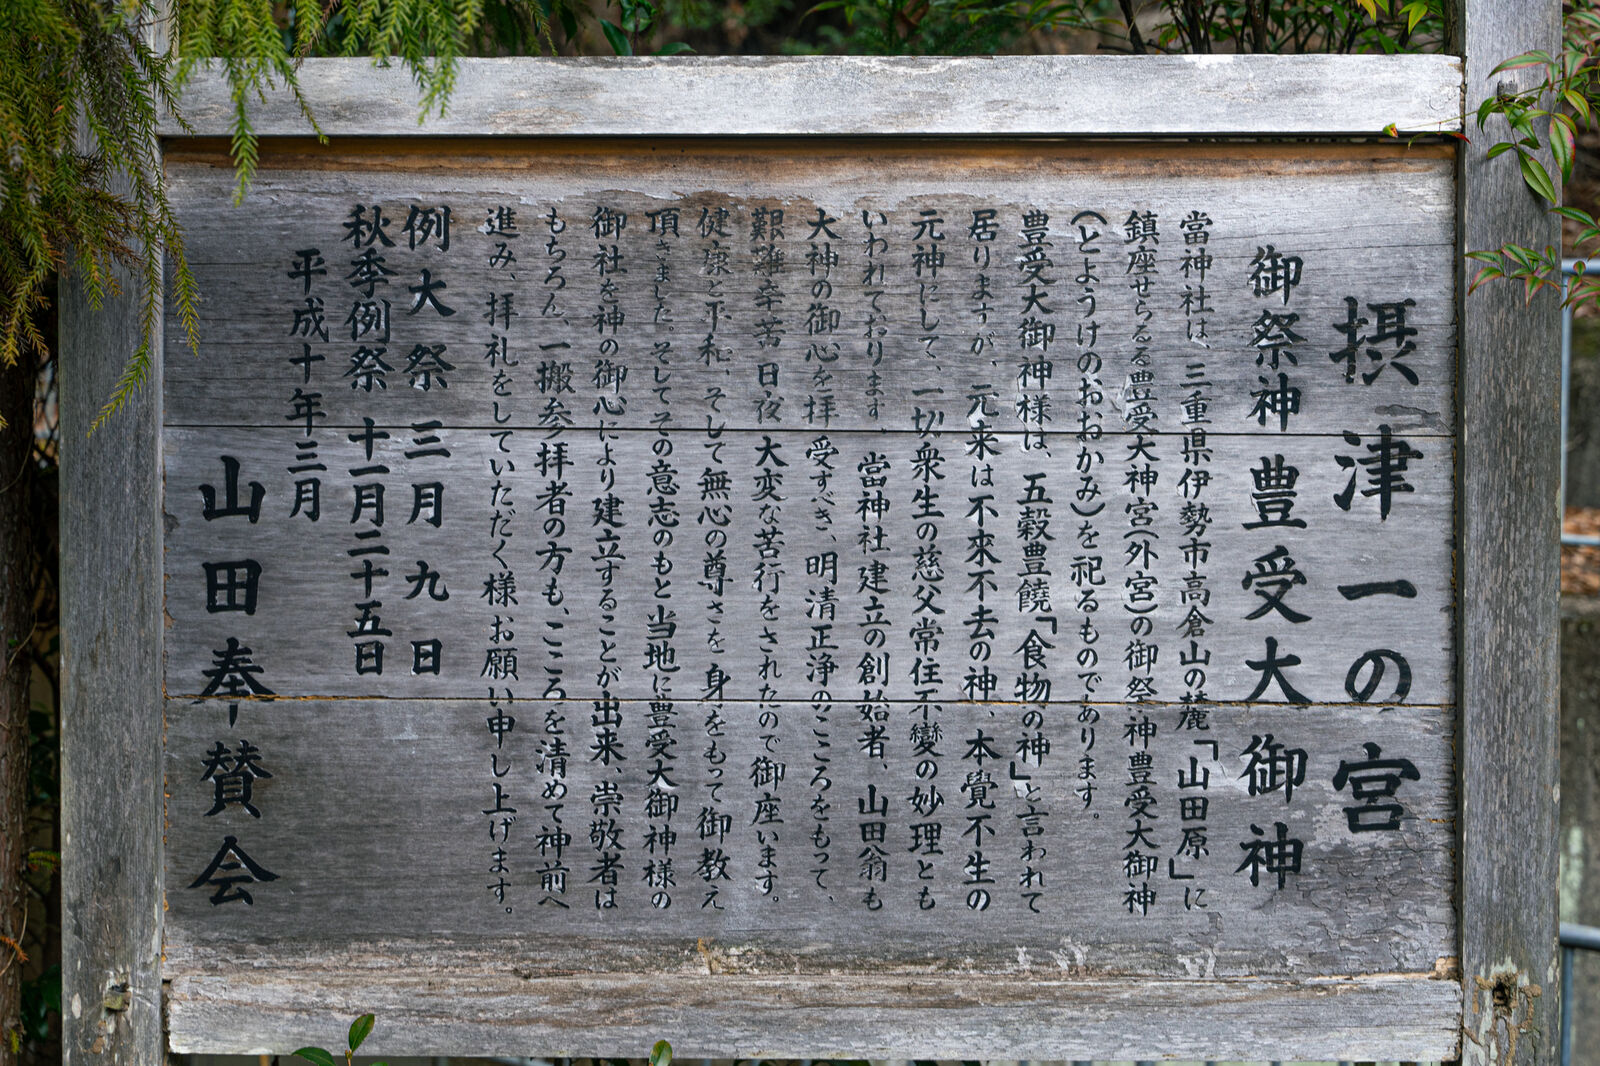 摂津一の宮
御祭神 豊受大御神
當神社は、三重県伊勢市高倉山の麓「山田原」に
鎮座せらるる豊受大神宮(外宮)の御祭神豊受大御神
(とようけのおおかみ)を祀るものであります。
豊受大御神様は、五穀豊饒「食物の神」と言われて
居りますが、元来は不來不去の神、本覺不生の
元神にして、一切衆生の慈父常住不變の妙理とも
いわれております。當神社建立の創始者、山田翁も
大神の御心を拝受すべき、明清正浄のこころをもって、
艱難辛苦日夜大変な苦行をされたので御座います。
健康と平和、そして無心の尊さを身をもって御教え
頂きました。そしてその意志のもと当地に豊受大御神様の
御社を神の御心により建立することが出来、崇敬者は
もちろん、一搬参拝者の方も、こころを清めて神前へ
進み、拝礼をしていただく様お願い申し上げます。
例大祭 三月九日
秋季例祭 十一月二十五日
平成十年三月
山田奉賛会